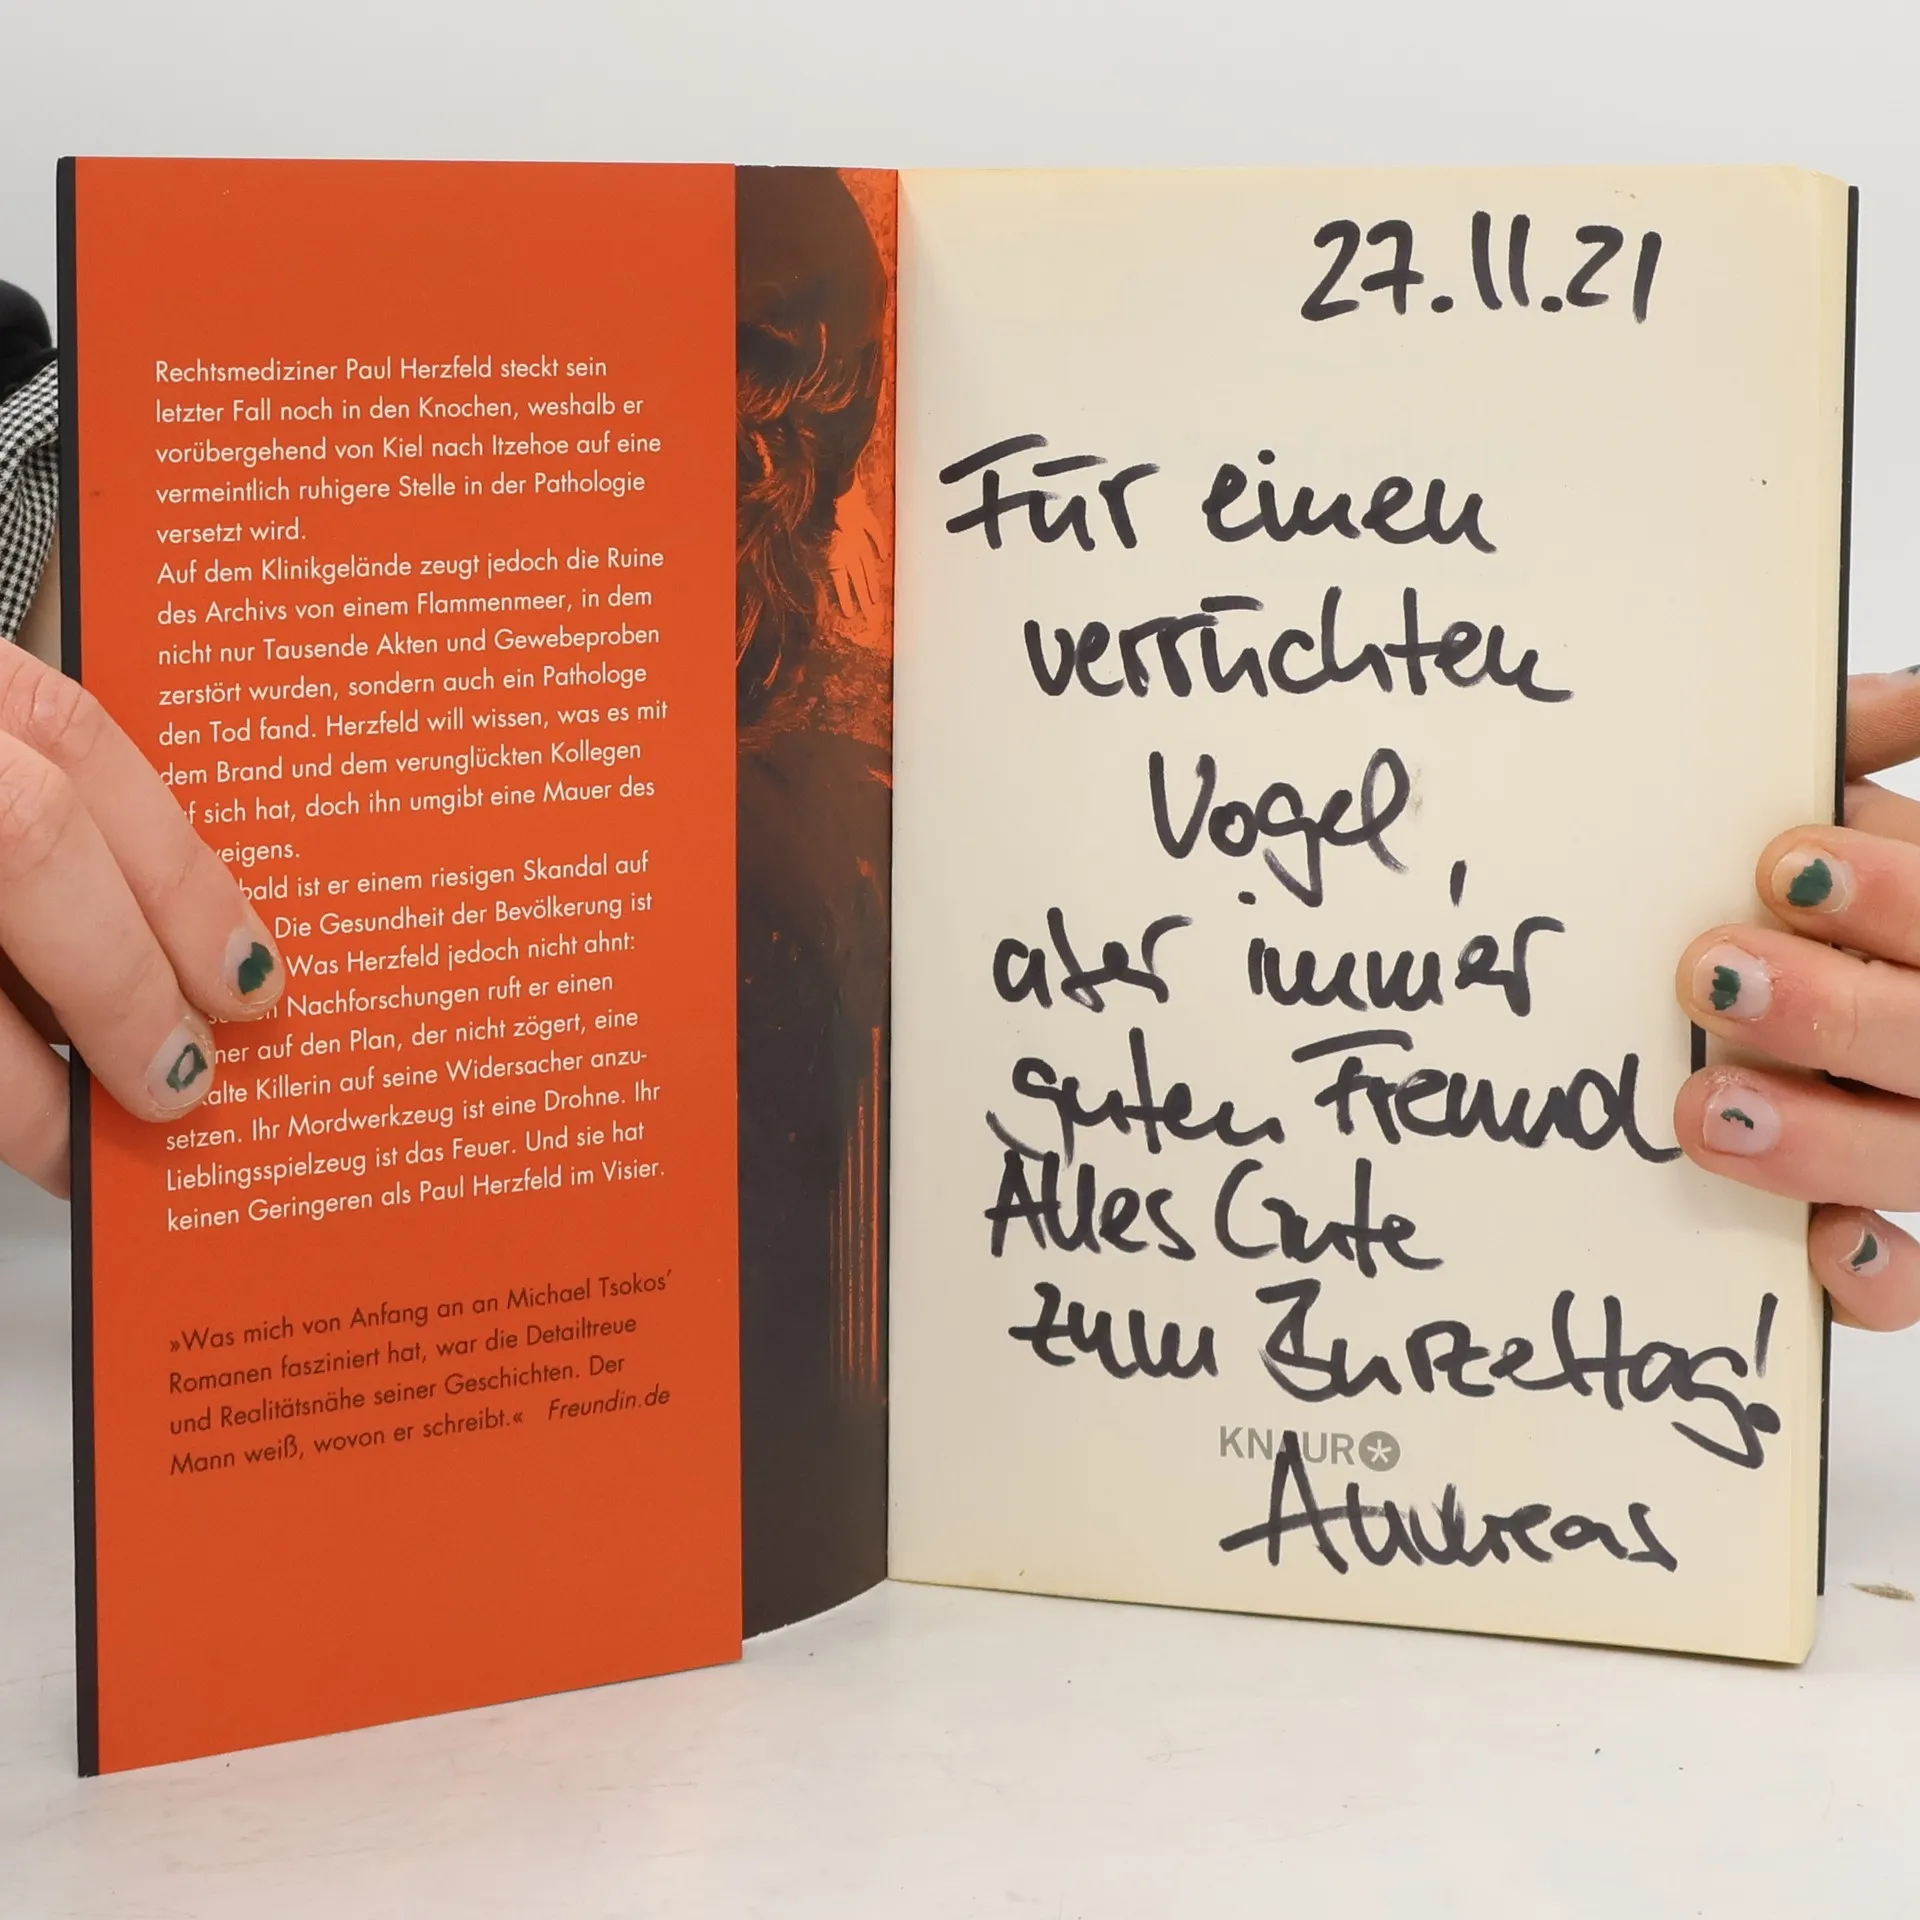 Rechtsmediziner Paul Herzfeld steckt sein
letzter Fall noch in den Knochen, weshalb er
vorübergehend von Kiel nach Itzehoe auf eine
vermeintlich ruhigere Stelle in der Pathologie
versetzt wird.
Auf dem Klinikgelände zeugt jedoch die Ruine
des Archivs von einem Flammenmeer, in dem
nicht nur Tausende Akten und Gewebeproben
zerstört wurden, sondern auch ein Pathologe
den Tod fand. Herzfeld will wissen, was es mit
dem Brand und dem verunglückten Kollegen
f sich hat, doch ihn umgibt eine Mauer des
eigens.
bald ist er einem riesigen Skandal auf
Die Gesundheit der Bevölkerung ist
Was Herzfeld jedoch nicht ahnt:
n Nachforschungen ruft er einen
ner auf den Plan, der nicht zögert, eine
kalte Killerin auf seine Widersacher anzu-
setzen. Ihr Mordwerkzeug ist eine Drohne. Ihr
Lieblingsspielzeug ist das Feuer. Und sie hat
keinen Geringeren als Paul Herzfeld im Visier.
»Was mich von Anfang an an Michael Tsokos'
Romanen fasziniert hat, war die Detailtreue
und Realitätsnähe seiner Geschichten. Der
Mann weiß, wovon er schreibt.« Freundin.de
27.11.21
Für einen
verrückten
Vogel,
aber immer
guten Freund
Alles Gute
zum Burzeltag!
KNAUR
Andreas